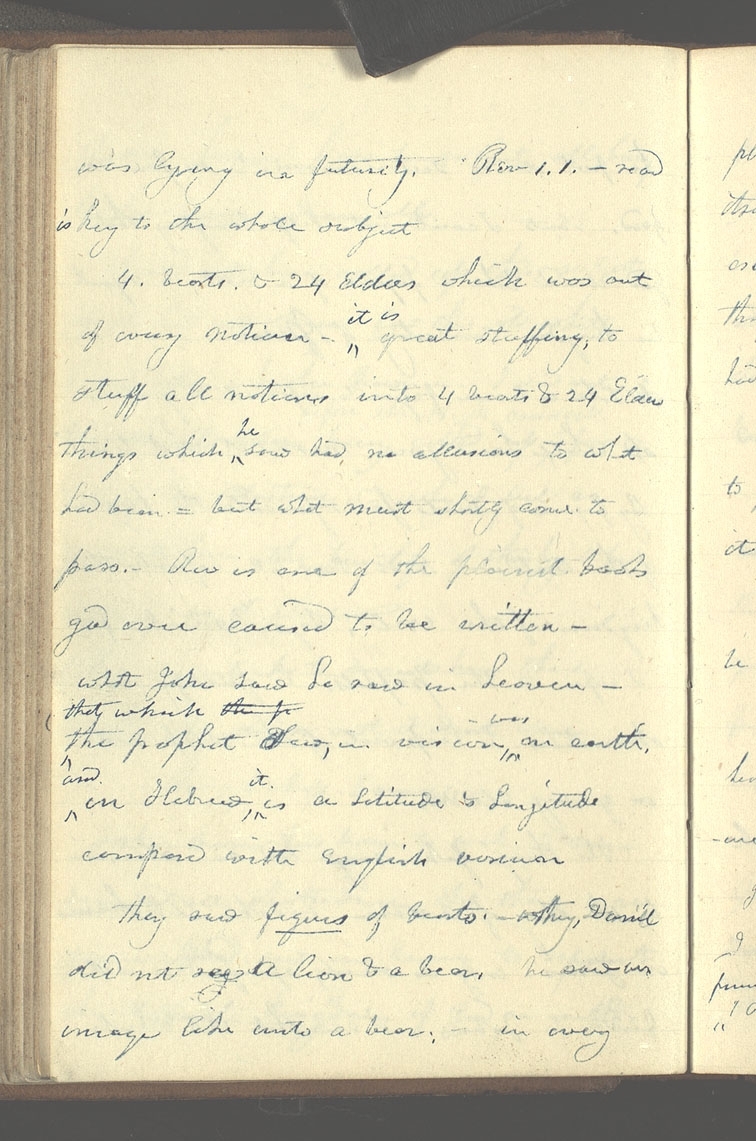 was lying in a futurity. Rev 1.1. – read
is key to the whole subject
4. beasts. & 24 Elders which was out
of every notion – it is great stuffing, to
stuff all notions into 4 beasts & 24 Elders
things which he saw had no allusions to what
had been = but what must shortly come to
pass. – Rev is one of the plainest books
god ever caused to be written –
what John saw he saw in heaven –
that which
the prophet saw, in vision, – was on earth,
and in Hebrew, it is a latitude & longitude
compared with English version
they saw figures of beasts. – they, Daniel
did not see a lion & a bear, he saw an
image like unto a bear; – in every